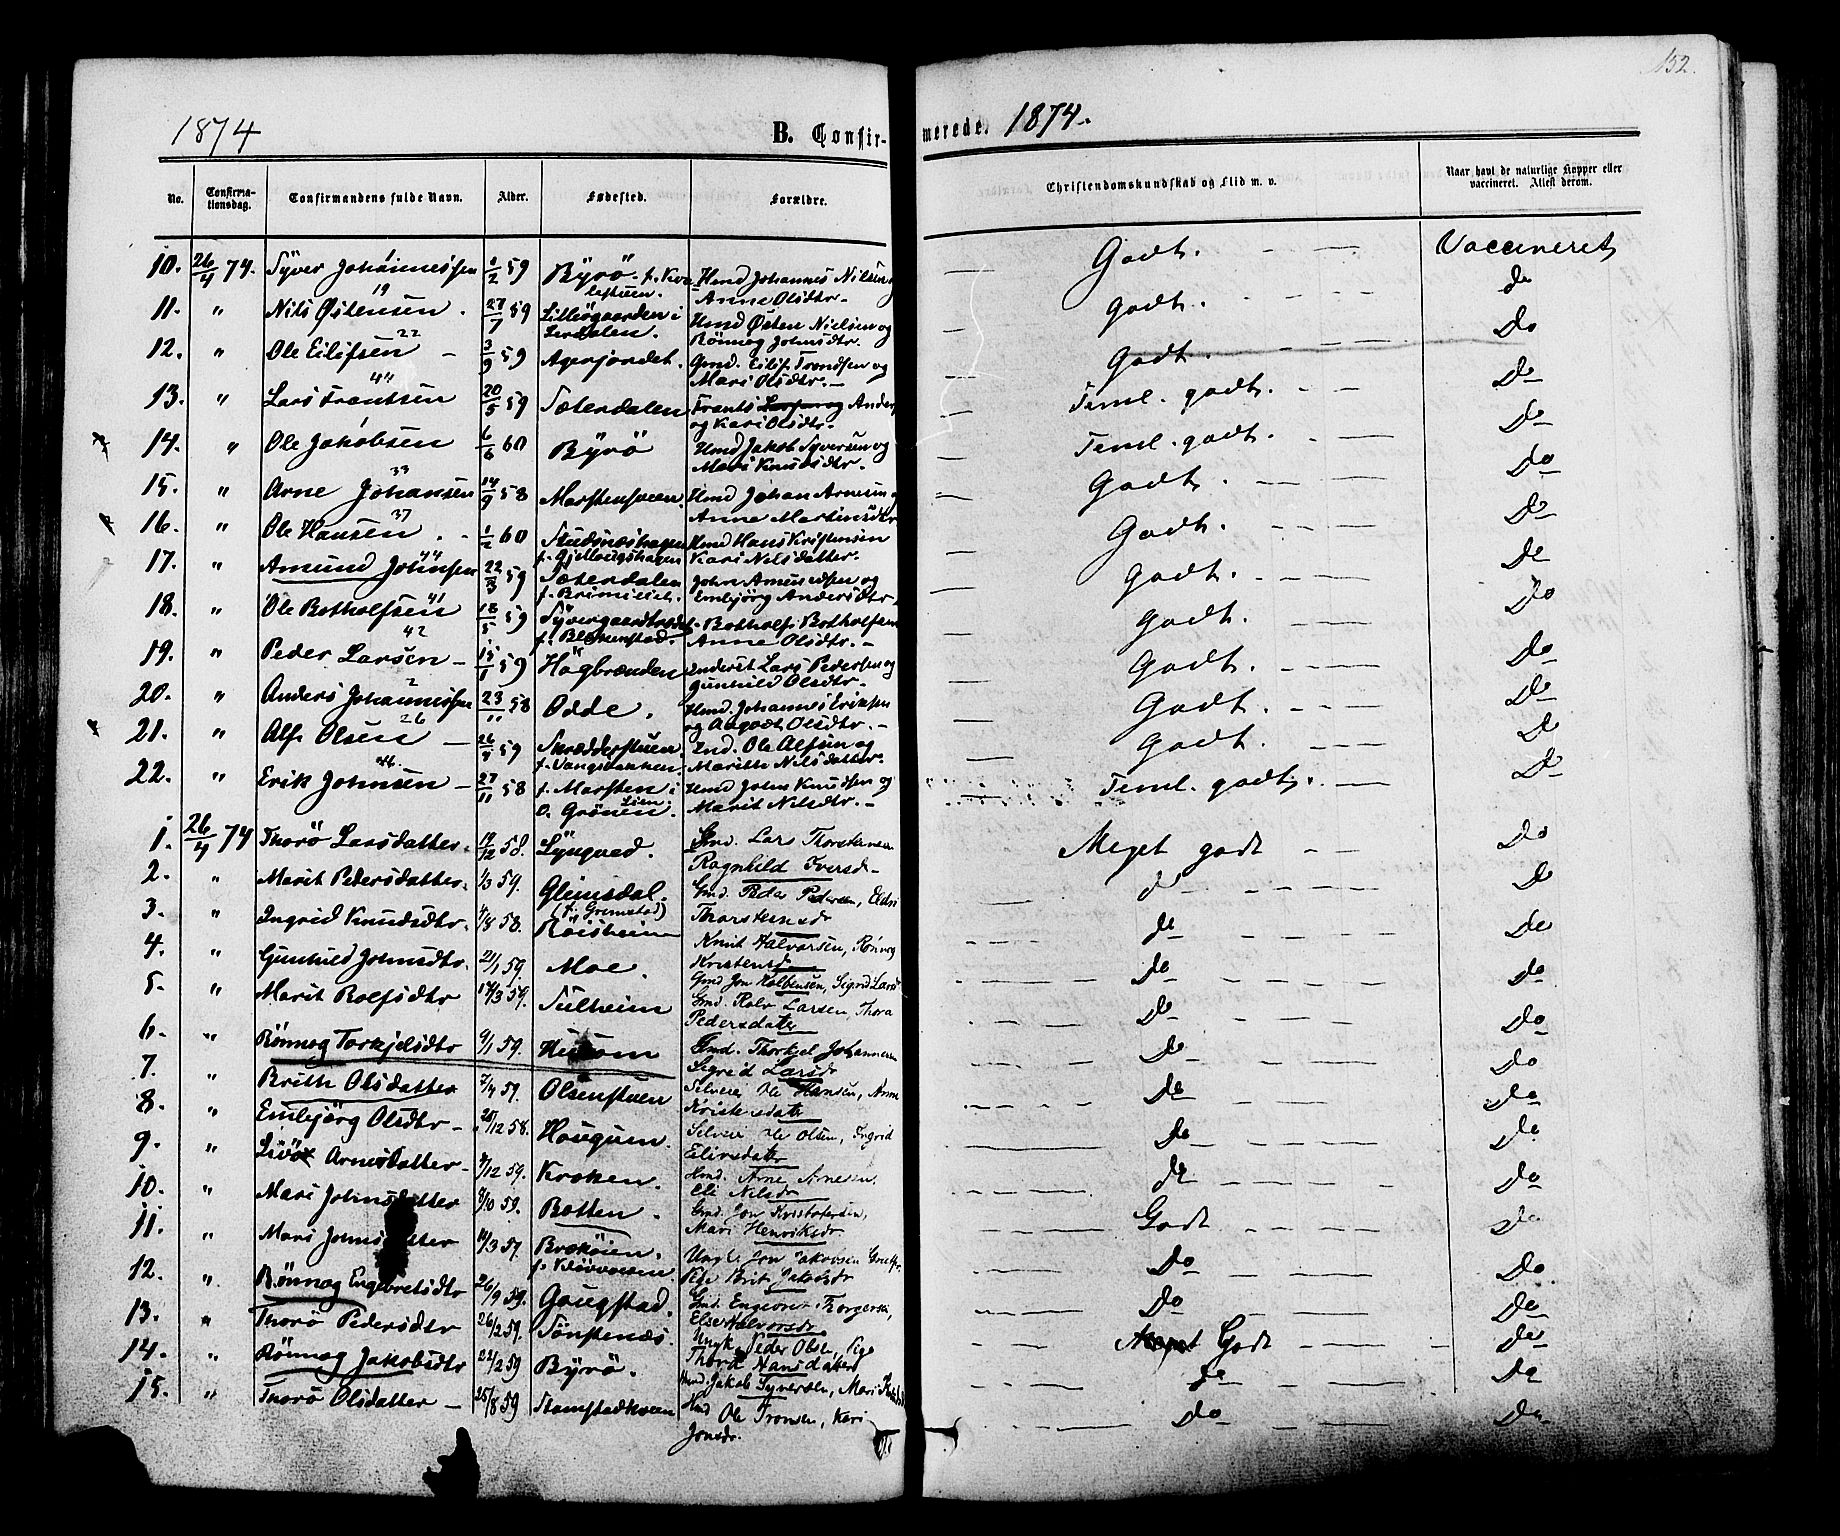 152.
1874 B. Confir- merede. 1874.
No. Confirmationsdag. Confirmandens fulde Navn. Alder. Fødested. Forældre. Christendomskundskab og Flid m. v. Naar havt de naturlige Kopper eller vaccineret. Attest derom.
10. 26/4 74. Syver Johannessen 1/2 59 Byrö Hmd Johannes Nilsen Anne Olsdtr. Godt. Vaccineret
11. " Nils Østensen 19 27/7 59 Lillesgaarden i Hmd Østen Nielsen og Rönnog Johnsdtr. Godt. do
12. " Ole Eilifsen 22 3/9 59 Agerjordet. Gmd. Eilif Trondsen og Mari Olsdtr. Godt. Do
13. " Lars Frantsen 44 20/5 59 Sæterdalen Frants Anders og Kari Olsdtr. Teml. godt. Do
14. " Ole Jakobsen 6/6 60 Byrö Hmd Jakob Syversen og Mari Knudsdtr. Teml. godt. Do
15. " Arne Johansen 33 14/9 58 Marstensveen Hmd Johan Arnesen Anne Martinsdtr Godt. Do
16. " Ole Hansen 37 1/2 60 Hmd Hans Kristensen Kari Nilsdatter. Godt. Do
17. " Amund Johnsen 44 22/3 59 Sæterdalen John Amundsen og Embjörg Andersdtr. Godt. Do
18. " Ole Botholfsen 41 18/5 59 f. Blomenstad. Botholf Botholfsen Anne Olsdtr. Godt. Do
19. " Peder Larsen 42 15/1 59 Högbrænden Lars Pedersen og Gunhild Olsdtr. Godt. Do
20. " Anders Johannessen 2 23/11 58 Odde. Hmd. Johannes Eriksen og Aagodt Olsdtr. Godt. Do
21. " Alf Olsen 26 26/4 59 Skrædderstuen Ind. Ole Alfsen og Marithe Nilsdatter. Godt. Do
22. " Erik Johnsen 46. 27/11 58 f. Marsten i Hmd John Knudsen og Marit Nilsdtr. Teml. godt. Do
1. 26/4 74 Thorö Larsdatter. 12/12 58. Lyngved. Gmd. Lars Thorstensen Ragnhild Iversd. Meget godt Do
2. " Marit Pedersdatter. 1/3 59. Glimsdal Gmd. Peder Pedersen, Eldri Thorstensdr do Do
3. " Ingrid Knudsdtr. 4/8 58. (f. Grimstad) Röisheim Knut Halvorsen, Rönnog Kristensdr do Do
4. " Gunhild Johnsdtr. 21/1 59. Moe. Gmd Jon Kolbensen, Sigrid Larsdr Do Do
5. " Marit Rolfsdtr 17/3 59. Sulheim Gmd. Rolv Larsen, Thora Pedersdater Do Do
6. " Rönnog Torkjelsdtr 9/1 59. Husom Gmd. Thorkjel Johannesen Sigrid Larsdr Do Do
7. " Brithe Olsdatter 7/4 59. Olsenstuen Selveier Ole Hansen, Anne Kristensdater Do Do
8. " Embjörg Olsdtr 12 58. Hougum. Selveier Ole Olsen, Ingrid Eilivsdater Do Do
9. " Livö Arnesdatter /12 59. Kroken. Hmd. Arne Arnesen. Eli Nilsdr do Do
10. " Mari Johnsdatter 8/10 59. Botten. Gmd. Jon Kristofersen, Mari Henriksdr Godt Do
11. " Mari Johnsdatter 14/3 57. Ungk. Jon Jakobsen Brit Jakobsdr Do Do
12. " Rönnog Engebretsdtr 26/9 59. Gougstad. Gmd. Engebret Thorgersen, Else Halvorsdr Do Do
13. " Thorö Pedersdtr 26/2 59. Sönstenæs Ungk. Peder Olsen, Pige Thord Hansdater Meget Godt Do
14. " Rönnog Jakobsdtr 22/2 59 Byrö. Hmd. Jakob Syversen, Mari do Do
15. " Thorö Olsdatter 25/8 59 Stamstadkveen Hmd Ole Tronsen, Kari Jonsdr. Do Do